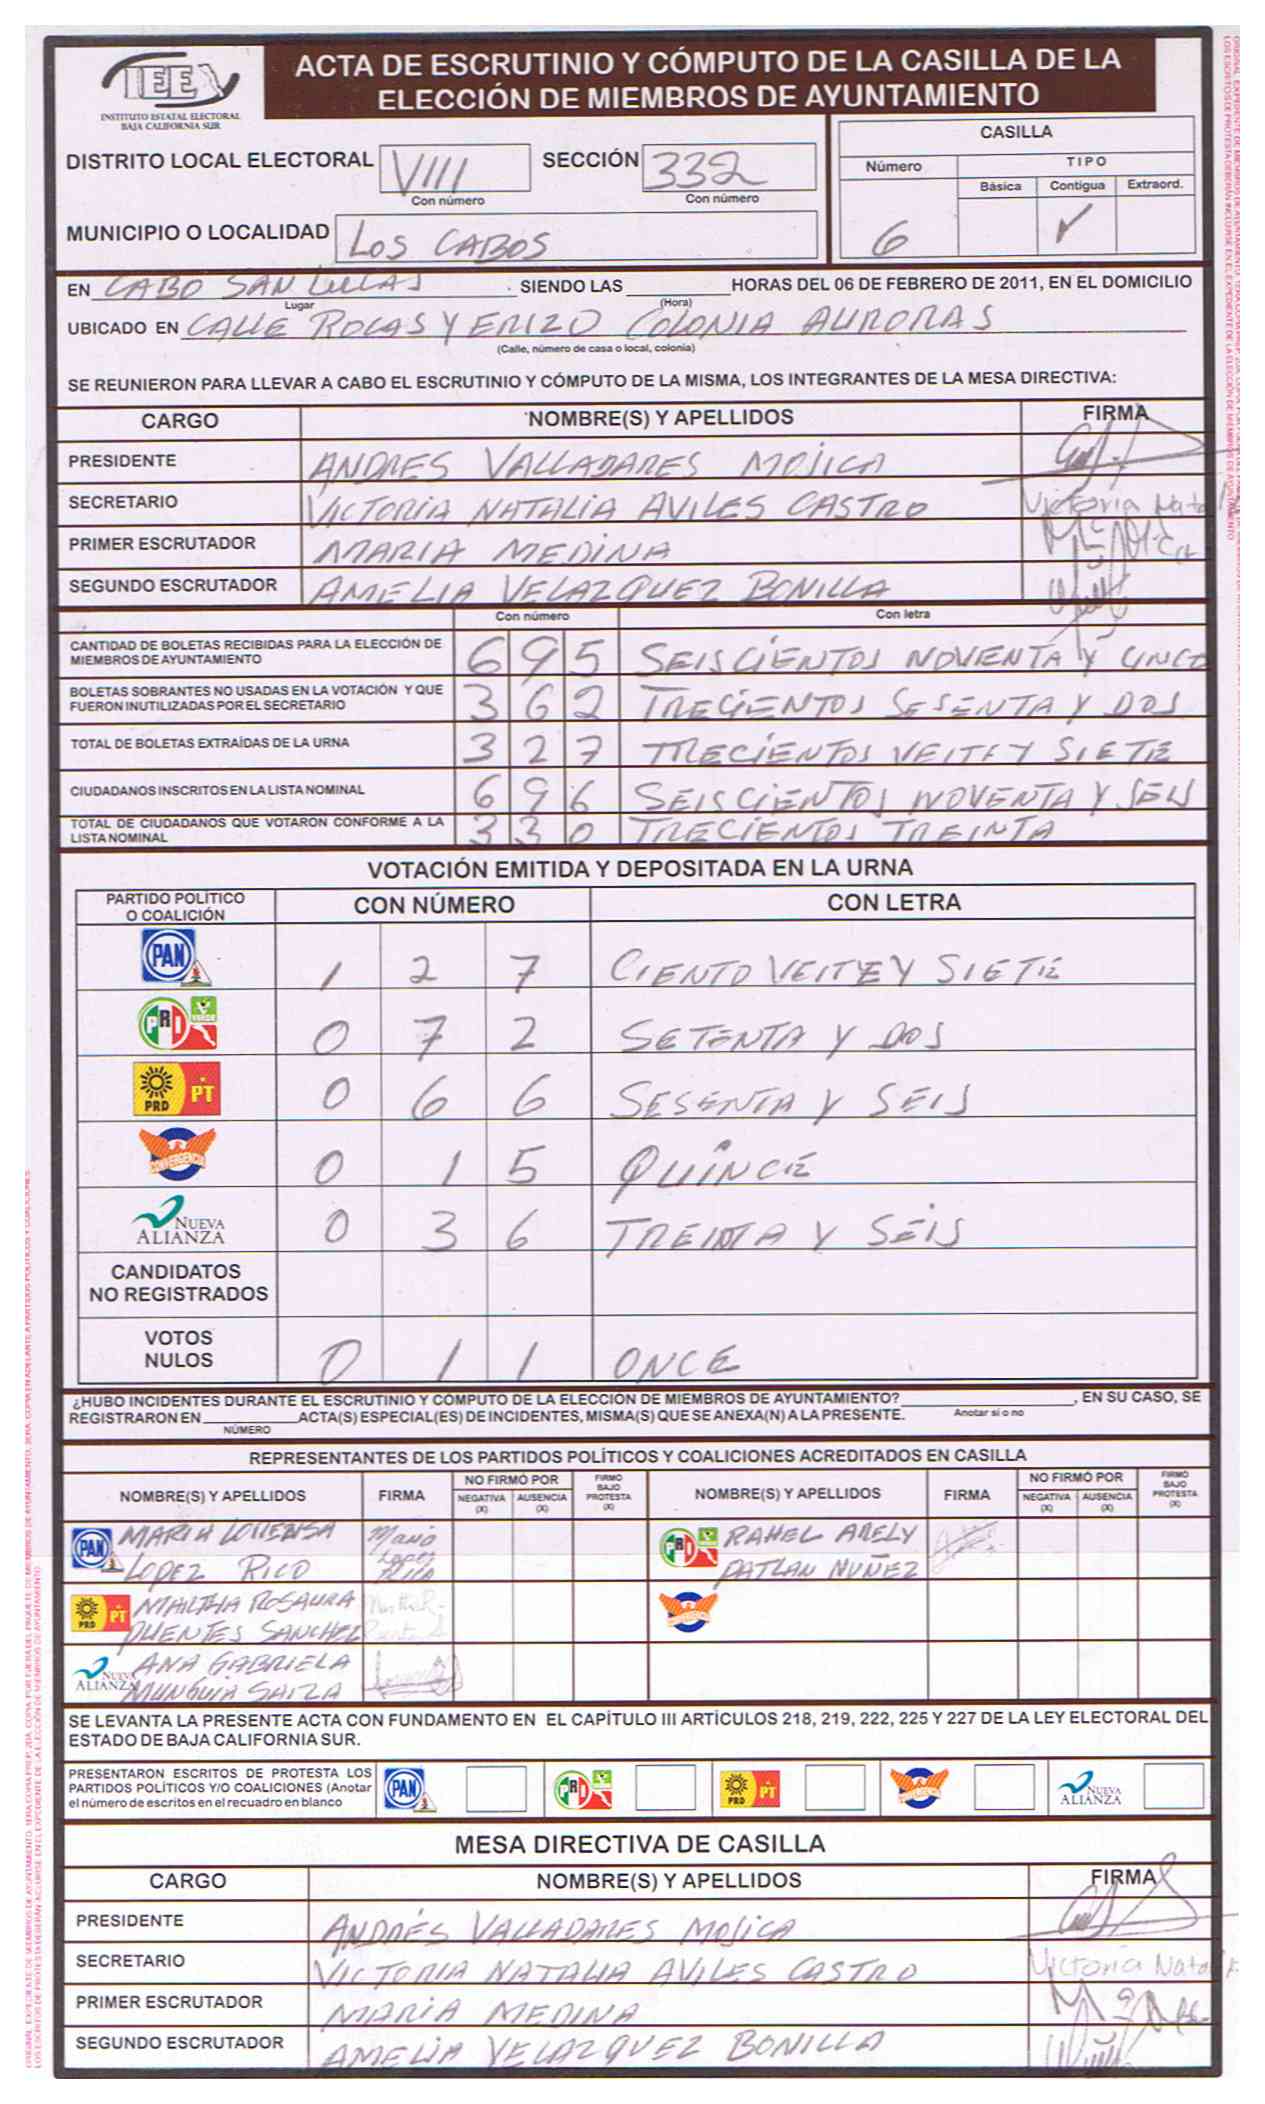 IEEA
INSTITUTO ESTATAL ELECTORAL
BAJA CALIFORNIA SUR
ACTA DE ESCRUTINIO Y CÓMPUTO DE LA CASILLA DE LA
ELECCIÓN DE MIEMBROS DE AYUNTAMIENTO
DISTRITO LOCAL ELECTORAL VIII SECCIÓN 332
Con número Con número
MUNICIPIO O LOCALIDAD LOS CABOS
CASILLA
Número TIPO
Básica Contigua Extraord.
6 ✓
EN CABO SAN LUCAS SIENDO LAS HORAS DEL 06 DE FEBRERO DE 2011, EN EL DOMICILIO
Lugar (Hora)
UBICADO EN CALLE ROCAS Y ERIZO COLONIA AURORAS
(Calle, número de casa o local, colonia)
SE REUNIERON PARA LLEVAR A CABO EL ESCRUTINIO Y CÓMPUTO DE LA MISMA, LOS INTEGRANTES DE LA MESA DIRECTIVA:
CARGO NOMBRE(S) Y APELLIDOS FIRMA
PRESIDENTE ANDRES VALLADARES MOJICA
SECRETARIO VICTORIA NATALIA AVILES CASTRO Victoria Nata
PRIMER ESCRUTADOR MARIA MEDINA
SEGUNDO ESCRUTADOR AMELIA VELAZQUEZ BONILLA
Con número Con letra
CANTIDAD DE BOLETAS RECIBIDAS PARA LA ELECCIÓN DE
MIEMBROS DE AYUNTAMIENTO 695 SEISCIENTOS NOVENTA Y CINCO
BOLETAS SOBRANTES NO USADAS EN LA VOTACIÓN Y QUE
FUERON INUTILIZADAS POR EL SECRETARIO 362 TRECIENTOS SESENTA Y DOS
TOTAL DE BOLETAS EXTRAÍDAS DE LA URNA 327 TRECIENTOS VEITEY SIETE
CIUDADANOS INSCRITOS EN LA LISTA NOMINAL 696 SEISCIENTOS NOVENTA Y SEIS
TOTAL DE CIUDADANOS QUE VOTARON CONFORME A LA
LISTA NOMINAL 330 TRECIENTOS TREINTA
VOTACIÓN EMITIDA Y DEPOSITADA EN LA URNA
PARTIDO POLÍTICO
O COALICIÓN CON NÚMERO CON LETRA
PAN 1 2 7 CIENTO VEITEY SIETE
PRI VERDE 0 7 2 SETENTA Y DOS
PRD PT 0 6 6 SESENTA Y SEIS
CONVERGENCIA 0 1 5 QUINCE
NUEVA ALIANZA 0 3 6 TREINTA Y SEIS
CANDIDATOS
NO REGISTRADOS
VOTOS
NULOS 0 1 1 ONCE
¿HUBO INCIDENTES DURANTE EL ESCRUTINIO Y CÓMPUTO DE LA ELECCIÓN DE MIEMBROS DE AYUNTAMIENTO? , EN SU CASO, SE
REGISTRARON EN ACTA(S) ESPECIAL(ES) DE INCIDENTES, MISMA(S) QUE SE ANEXA(N) A LA PRESENTE. Anotar sí o no
NÚMERO
REPRESENTANTES DE LOS PARTIDOS POLÍTICOS Y COALICIONES ACREDITADOS EN CASILLA
NOMBRE(S) Y APELLIDOS FIRMA NO FIRMÓ POR NEGATIVA (X) AUSENCIA (X) FIRMÓ BAJO PROTESTA (X) NOMBRE(S) Y APELLIDOS FIRMA NO FIRMÓ POR NEGATIVA (X) AUSENCIA (X) FIRMÓ BAJO PROTESTA (X)
PAN MARIA LORENSA LOPEZ RICO
PRI VERDE RAHEL ARELY PATLAN NUÑEZ
PRD PT MARTHA ROSAURA PUENTES SANCHEZ
CONVERGENCIA
NUEVA ALIANZA ANA GABRIELA MUNGUIA
SE LEVANTA LA PRESENTE ACTA CON FUNDAMENTO EN EL CAPÍTULO III ARTÍCULOS 218, 219, 222, 225 Y 227 DE LA LEY ELECTORAL DEL
ESTADO DE BAJA CALIFORNIA SUR.
PRESENTARON ESCRITOS DE PROTESTA LOS
PARTIDOS POLÍTICOS Y/O COALICIONES (Anotar
el número de escritos en el recuadro en blanco
PAN PRI VERDE PRD PT CONVERGENCIA NUEVA ALIANZA
MESA DIRECTIVA DE CASILLA
CARGO NOMBRE(S) Y APELLIDOS FIRMA
PRESIDENTE ANDRÉS VALLADARES MOJICA
SECRETARIO VICTORIA NATALIA AVILES CASTRO Victoria Natal
PRIMER ESCRUTADOR MARIA MEDINA
SEGUNDO ESCRUTADOR AMELIA VELAZQUEZ BONILLA